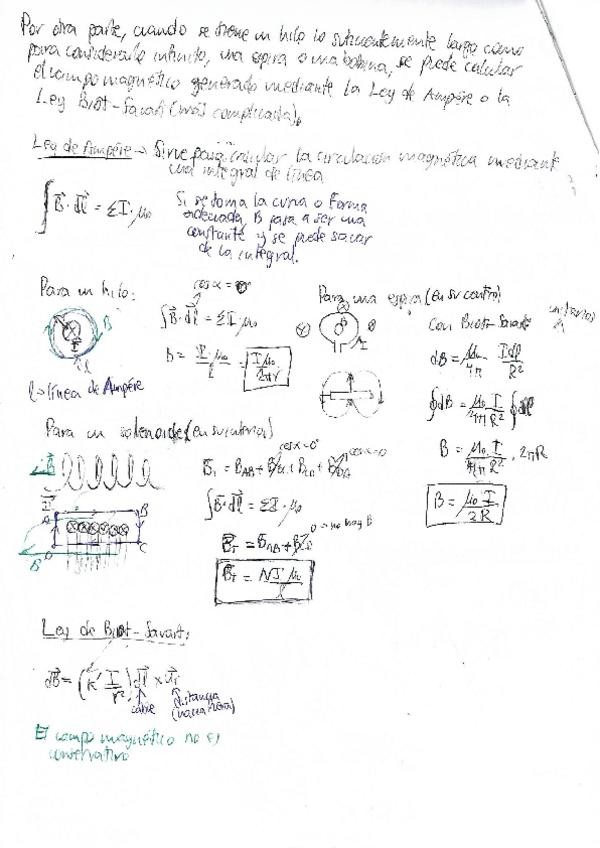 Por otra parte, cuando se tiene un hilo lo suficientemente largo como
para considerarlo infinito, una espira o una bobina, se puede calcular
el campo magnético generado mediante la Ley de Ampére o la
Ley Biot-Savart (más complicada).
Ley de Ampére → Sirve para calcular la circulación magnética mediante
una integral de línea
∫ B⃗ · dl⃗ = ΣI · μ₀
Si se toma la curva o forma
adecuada, B pasa a ser una
constante y se puede sacar
de la integral.
Para un hilo:
∫B⃗·dl⃗ = ΣI μ₀
B = I μ₀ / l = I μ₀ / 2πr
B
I
l
l → línea de Ampére
Para una espira (en su centro)
Con Biot-Savart
unitarios
I
dB = μ₀/4π · I dl/R²
∮dB = μ₀/4π · I/R² ∮dl
B = μ₀/4π · I/R² · 2πR
B = μ₀ I / 2R
Para un solenoide (en su interior)
cos α = 0
cos α = 0
∫B⃗·dl⃗ = ΣI · μ₀
0 → no hay B
B⃗T = N I μ₀ / l
B
B
C
Ley de Biot-Savart:
dB⃗ = (K' I/r²) dl⃗ × u⃗r
cable
distancia
El campo magnético no es
conservativo